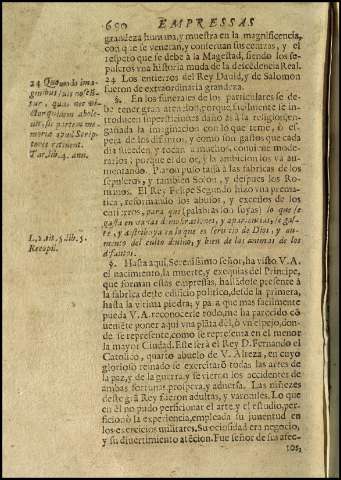 690 EMPRESSAS
grandeza humana, y muestra en la magnificencia,
con que se veneran, y conseruan sus cenizas, y el
respeto que se debe à la Magestad, siendo los se-
pulcros vna historia muda de la descēdencia Real.
24 Los entierros del Rey Dauid, y de Salomon
fueron de extraordinaria grandeza.
24 Quomodo ima-
ginibus suis noscun-
tur, quas nec vi-
ctor quidem abole-
uit, sic partem me-
moria apud Scrip-
tores retinent.
Tac. lib. 4. ann.
§. En los funerales de los particulares se de-
be tener gran atencion, porque facilmente se in-
troducen supersticiones dañosas à la religion, en-
gañada la imaginacion con lo que teme, ò es-
pera de los difuntos, y como son gastos que cada
dia suceden, y tocan à muchos, conuiene mode-
rarlos, porque el dolor, y la ambicion los và au-
mentando. Platon puso tassa à las fabricas de los
sepulcros, y tambien Solon, y despues los Ro-
manos. El Rey Felipe Segundo hizo vna premà-
tica, reformando los abusos, y excessos de los
entierros, para que (palabras son suyas) lo que se
gasta en vanas demostraciones, y apariencias, se gas-
te, y distribuya en lo que es seruicio de Dios, y au-
mento del culto diuino, y bien de las animas de los
difuntos.
L. 2. tit. 5. lib. 5.
Recopil.
§. Hasta aqui, Serenissimo señor, ha visto V. A.
el nacimiento, la muerte, y exequias del Principe,
que forman estas empressas, hallādose presente à
la fabrica deste edificio politico, desde la primera,
hasta la vltima piedra; y para que mas facilmente
pueda V. A. reconocerle todo, me ha parecido cō
ueniēte poner aqui vna plāta dèl, ò vn espejo, don-
de se represente, como se representa en el menor
la mayor Ciudad. Este serà el Rey D. Fernando el
Catolico, quarto abuelo de V. Alteza, en cuyo
glorioso reinado se exercitaron todas las artes de
la paz, y de la guerra, y se vieron los accidentes de
ambas fortunas, prospera, y aduersa. Las niñezes
deste gran Rey fueron adultas, y varoniles. Lo que
en èl no pudo perficionar el arte, y el estudio, per-
ficionò la experiencia, empleada su juventud en
los exercicios militares. Su ociosidad era negocio,
y su diuertimiento atēcion. Fue señor de sus afec-
tos,